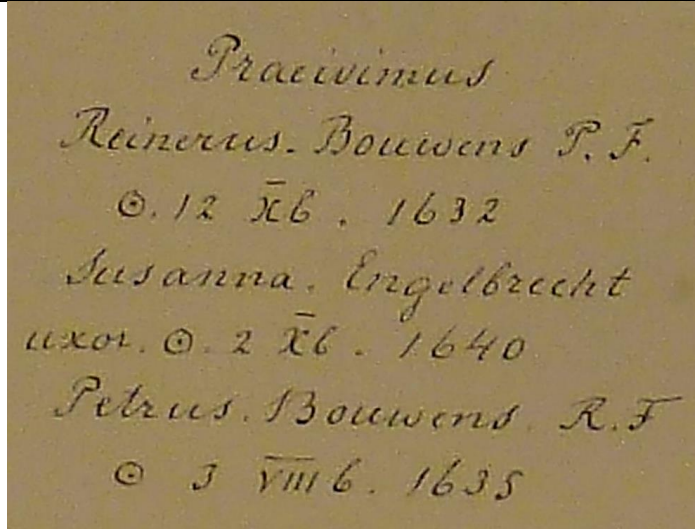 Praeivimus
Reinerus. Bouwens P. F.
⊙. 12 X̅b. 1632
Susanna. Engelbrecht
uxor. ⊙. 2 X̅b. 1640
Petrus. Bouwens. R. F
⊙ 3 V̅I̅I̅I̅b. 1635